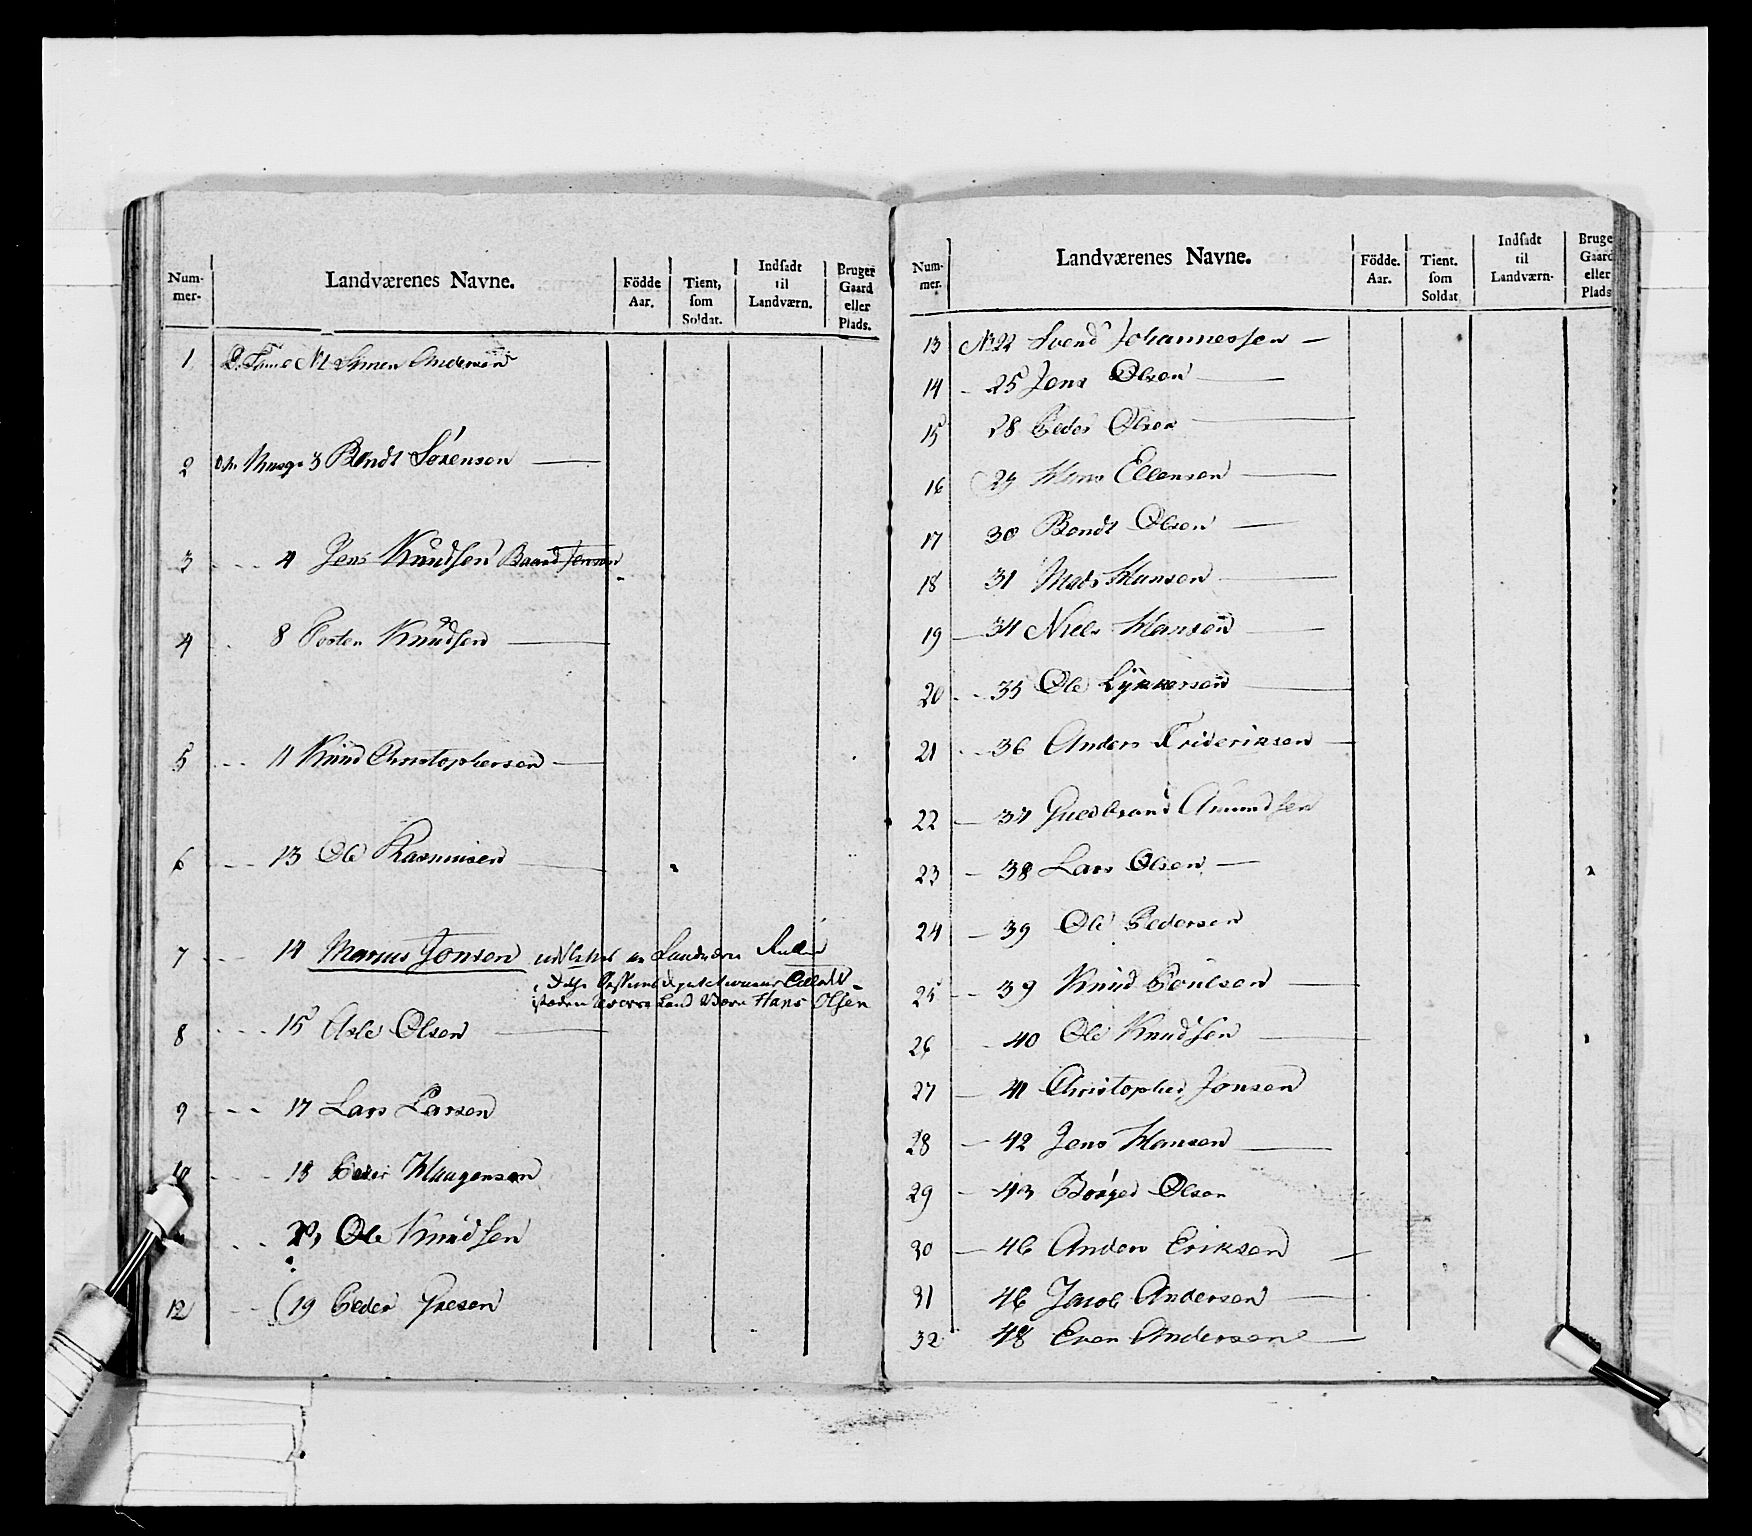 Num-
mer.
Landværenes Navne.
Födde
Aar.
Tient,
som
Soldat.
Indsadt
til
Landværn.
Bruger
Gaard
eller
Plads.
1 No 1 Simen Andersen
2 3 Bendt Sörensen
3 4 Jens Knudsen
4 8 Knudsen
5 11 Knud Christophersen
6 13 Ole Rasmusen
7 14 Marius Jonsen
Hans Olsen
8 15 Asle Olsen
9 17 Lars Larsen
10 18 Peder Haagensen
Ole Knudsen
12 19 Peder
Num-
mer.
Landværenes Navne.
Födde.
Aar.
Tient.
som
Soldat
Indsadt
til
Landværn-
Bruge
Gaard
eller
Plads
13 No 22 Svend Johannessen
14 25 Jens Olsen
15 28 Peder Olsen
16 29 Hans Ellensen
17 30 Bendt Olsen
18 31 Mads Hansen
19 34 Niels Hansen
20 35 Ole
21 36 Anders Frideriksen
22 37 Guldbrand Amundsen
23 38 Lars Olsen
24 39 Ole Pedersen
25 39 Knud Poulsen
26 40 Ole Knudsen
27 41 Christopher Jonsen
28 42 Jens Hansen
29 43 Börged Olsen
30 46 Anders Eriksen
31 46 Jacob Andersen
32 48 Even Andersen